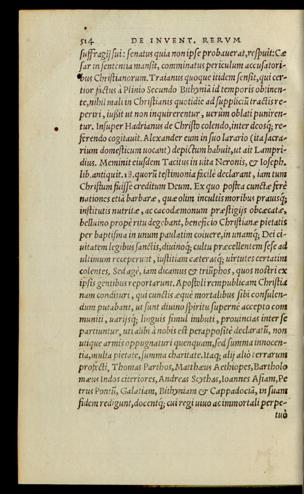 514 DE INVENT. RERVM
suffragij sui: senatus quia non ipse probauerat, respuit: Cæ
sar in sententia mansit, comminatus periculum accusatori-
bus Christianorum. Traianus quoque itidem sensit, qui cer-
tior factus à Plinio Secundo Bithynia id temporis obinen-
te, nihil mali in Christianis quotidie ad supplicium tractis re-
periri, iussit ut non inquirerentur, uerum oblati punirên-
tur. Insuper Hadrianus de Christo colendo, inter deosq; re-
ferendo cogitauit. Alexander eum in suo larario (ita sacra-
rium domesticum uocant) depictum habuit, ut ait Lampri-
dius. Meminit eiusdem Tacitus in uita Neronis, & Ioseph.
lib. antiquit. 18. quorū testimonia facile declarant, iam tum
Christum fuisse creditum Deum. Ex quo postea cunctæ ferè
nationes etiā barbaræ, quæ olim incultis moribus prauisq;
institutis nutritæ, ac cacodæmonum præstigijs obcæcatæ,
belluino propè ritu degebant, beneficio Christianæ pietatis
per baptisma in unum paulatim coiuere, in unamq; Dei ci-
uitatem legibus sanctis, diuinoq; cultu præcellentem sese ad
ultimum receperunt, iustitiam cæterasq; uirtutes certatim
colentes. Sed age, iam dicamus & triūphos, quos nostri ex
ipsis gentibus reportarunt. Apostoli rempublicam Christia
nam condituri, qui cunctis æquè mortalibus sibi consulen-
dum putabant, ut sunt diuino spiritu supernè accepto com
muniti, uarijsq; linguis simul imbuti, prouincias inter se
partiuntur, ut alibi à nobis est perappositè declaratū, non
utique armis oppugnaturi quenquam, sed summa innocen-
tia, multa pietate, summa charitate. Itaq; alij aliò terrarum
profecti, Thomas Parthos, Matthæus Aethiopes, Bartholo
mæus Indos citeriores, Andreas Scythas, Ioannes Asiam, Pe
trus Pontū, Galatiam, Bithyniam & Cappadociā, in suam
fidem redigunt, docentq; cui regi uiuo ac immortali perpe-
tuò